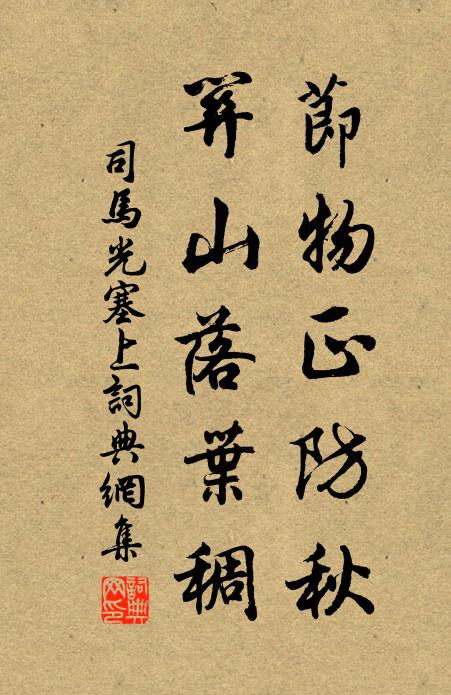 節物正防秋
關山落葉稠
司馬光塞上詞典網集
詞典网印